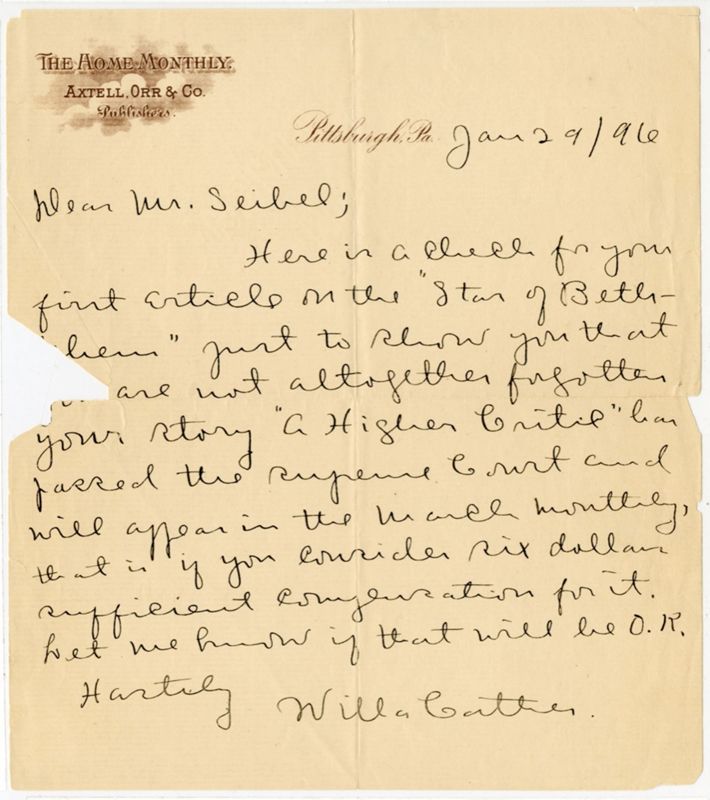 THE HOME MONTHLY.
AXTELL, ORR & CO.
Publishers.
Pittsburgh, Pa. Jan 29/96
Dear Mr. Seibel;
Here is a check for your
first article on the "Star of Beth-
lehem" just to show you that
you are not altogether forgotten
your story "A Higher Critic" has
passed the supreme Court and
will appear in the March monthly,
that is if you consider six dollars
sufficient compensation for it.
Let me know if that will be O.K.
Hastily
Willa Cather.